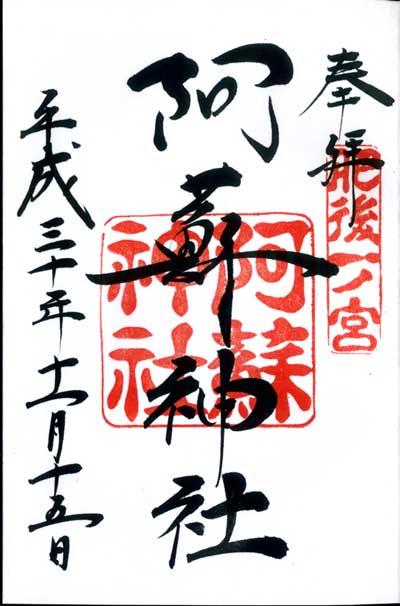 奉拝
肥後一ノ宮
阿蘇神社
阿蘇神社
平成三十年十一月十五日